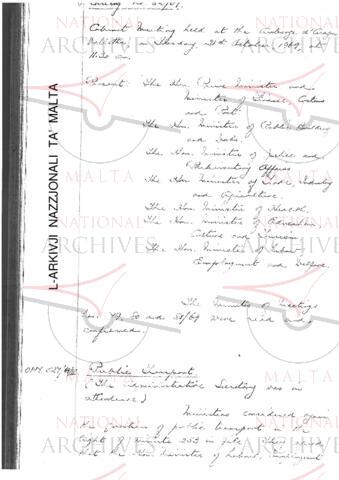 Meeting No. 52/69.
Cabinet Meeting held at the Auberge d'Aragon
Valletta, on Tuesday 21st October 1969, at
11.30 am.
Present: The Hon. Prime Minister and
Minister of Finance, Customs
and Port.
The Hon. Minister of Public Building
and Works.
The Hon. Minister of Justice and
Parliamentary Affairs
The Hon. Minister of Trade, Industry
and Agriculture.
The Hon. Minister of Health.
The Hon. Minister of Education,
Culture and Tourism
The Hon. Minister of Labour
Employment and Welfare.
The Minutes of Meetings
Nos. 49, 50 and 51/69 were read and
confirmed.
OPM
Public Transport
(The Administrative Secretary was in
attendance.)
Ministers considered again
the question of public transport in the
light of minute 253 in file. They
the Hon. Minister of Labour, Employment
L-ARKIVJI NAZZJONALI TA' MALTA
NATIONAL ARCHIVES
MALTA